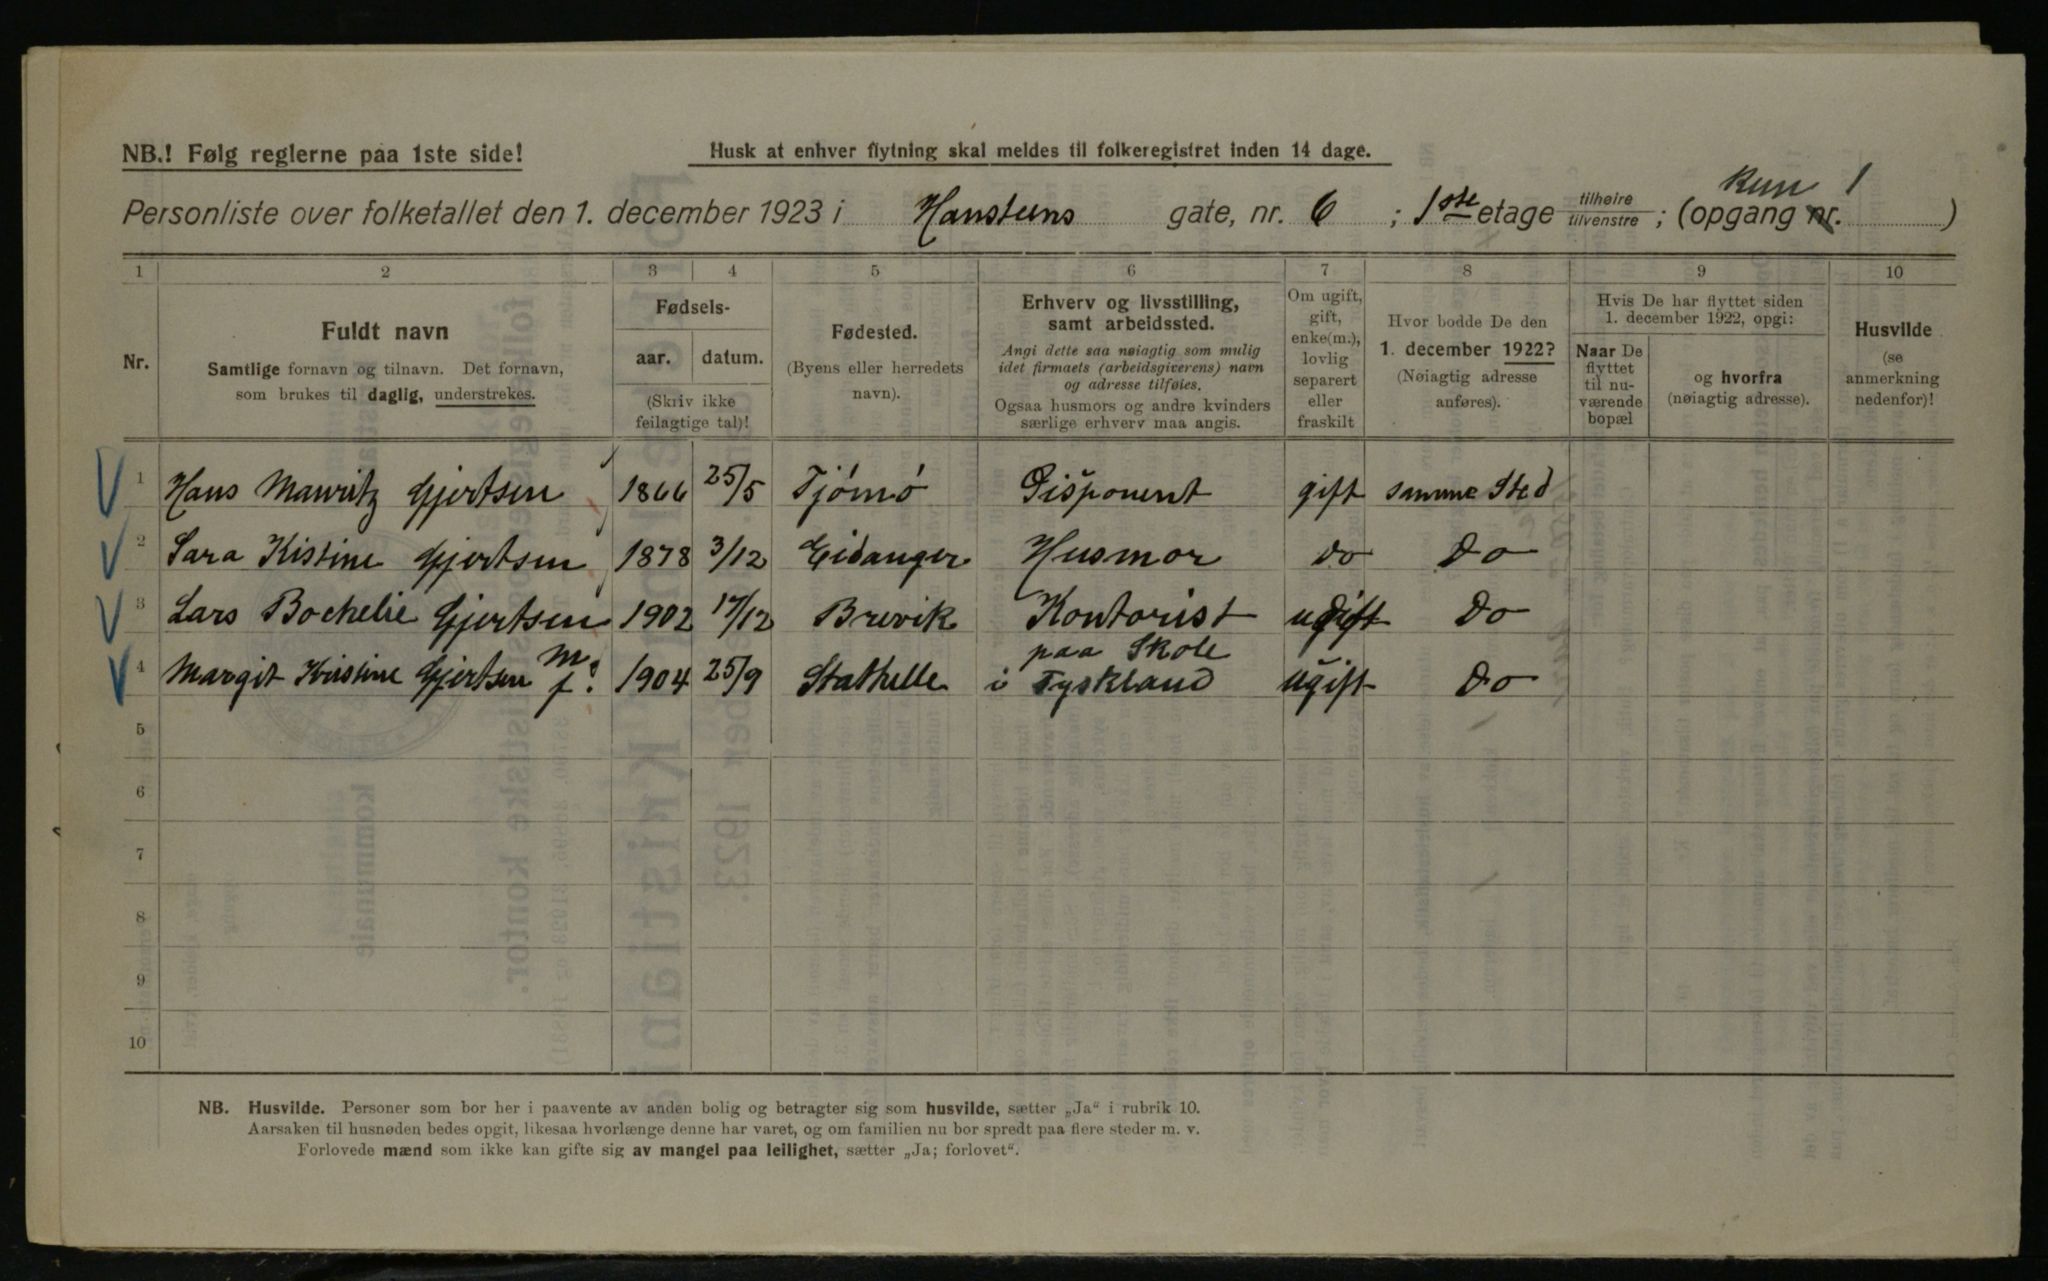 NB.! Følg reglerne paa 1ste side!
Husk at enhver flytning skal meldes til folkeregistret inden 14 dage.
Kun 1
Personliste over folketallet den 1. december 1923 i Hansteens gate, nr. 6 ; 1ste etage tilhøire tilvenstre ; (opgang nr. )
1 2 3 4 5 6 7 8 9 10
Nr.
Fuldt navn
Samtlige fornavn og tilnavn. Det fornavn,
som brukes til daglig, understrekes.
Fødsels-
aar. datum.
(Skriv ikke
feilagtige tal)!
Fødested.
(Byens eller herredets
navn).
Erhverv og livsstilling,
samt arbeidssted.
Angi dette saa nøiagtig som mulig
idet firmaets (arbeidsgiverens) navn
og adresse tilføies.
Ogsaa husmors og andre kvinders
særlige erhverv maa angis.
Om ugift,
gift,
enke(m.),
lovlig
separert
eller
fraskilt
Hvor bodde De den
1. december 1922?
(Nøiagtig adresse
anføres).
Hvis De har flyttet siden
1. december 1922, opgi:
Naar De
flyttet
til nu-
værende
bopæl
og hvorfra
(nøiagtig adresse).
Husvilde
(se
anmerkning
nedenfor)!
1 Hans Mauritz Gjertsen 1866 25/5 Tjømø Disponent gift samme Sted
2 Sara Kistine Gjertsen 1878 3/12 Eidanger Husmor do Do
3 Lars Bochelie Gjertsen 1902 17/12 Brevik Kontorist ugift Do
4 Margit Kristine Gjertsen m. f. 1904 25/9 Stathelle paa Skole i Tyskland ugift Do
5
6
7
8
9
10
NB. Husvilde. Personer som bor her i paavente av anden bolig og betragter sig som husvilde, sætter „Ja“ i rubrik 10.
Aarsaken til husnøden bedes opgit, likesaa hvorlænge denne har varet, og om familien nu bor spredt paa flere steder m. v.
Forlovede mænd som ikke kan gifte sig av mangel paa leilighet, sætter „Ja; forlovet“.